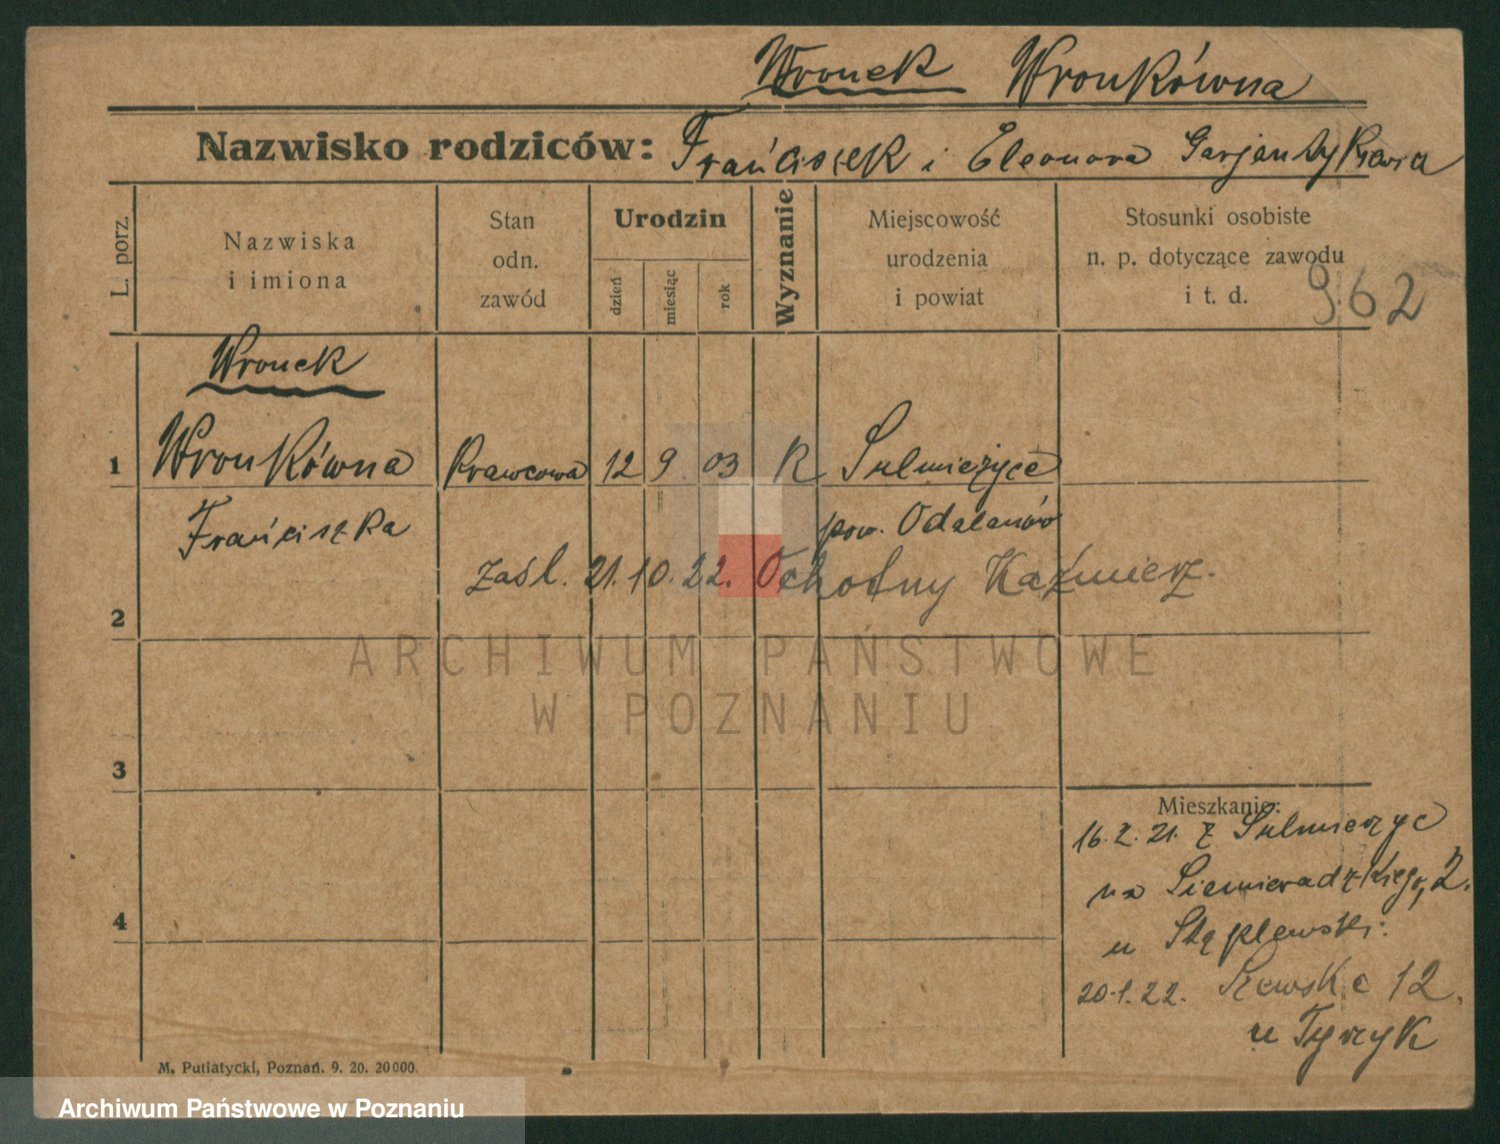 Wronek Wronkówna
Nazwisko rodziców: Frańciszek i Eleonora
L. porz.
Nazwiska
i imiona
Stan
odn.
zawód
Urodzin
dzień
miesiąc
rok
Wyznanie
Miejscowość
urodzenia
i powiat
Stosunki osobiste
n. p. dotyczące zawodu
i t. d.
962
Wronek
1 Wronkówna Krawcowa 12 9 03 R Sulmierzyce
Frańciszka pow. Odalanów
zaśl. 21.10.22. Ochotny Kaźmierz.
2
ARCHIWUM PAŃSTWOWE
W POZNANIU
3
Mieszkanie:
16.2.21. z Sulmierzyc
na Siemieradzkiego, 2.
4
u
20.1.22. 12.
u Tyrzyk
M. Putiatycki, Poznań. 9. 20. 20000.
Archiwum Państwowe w Poznaniu